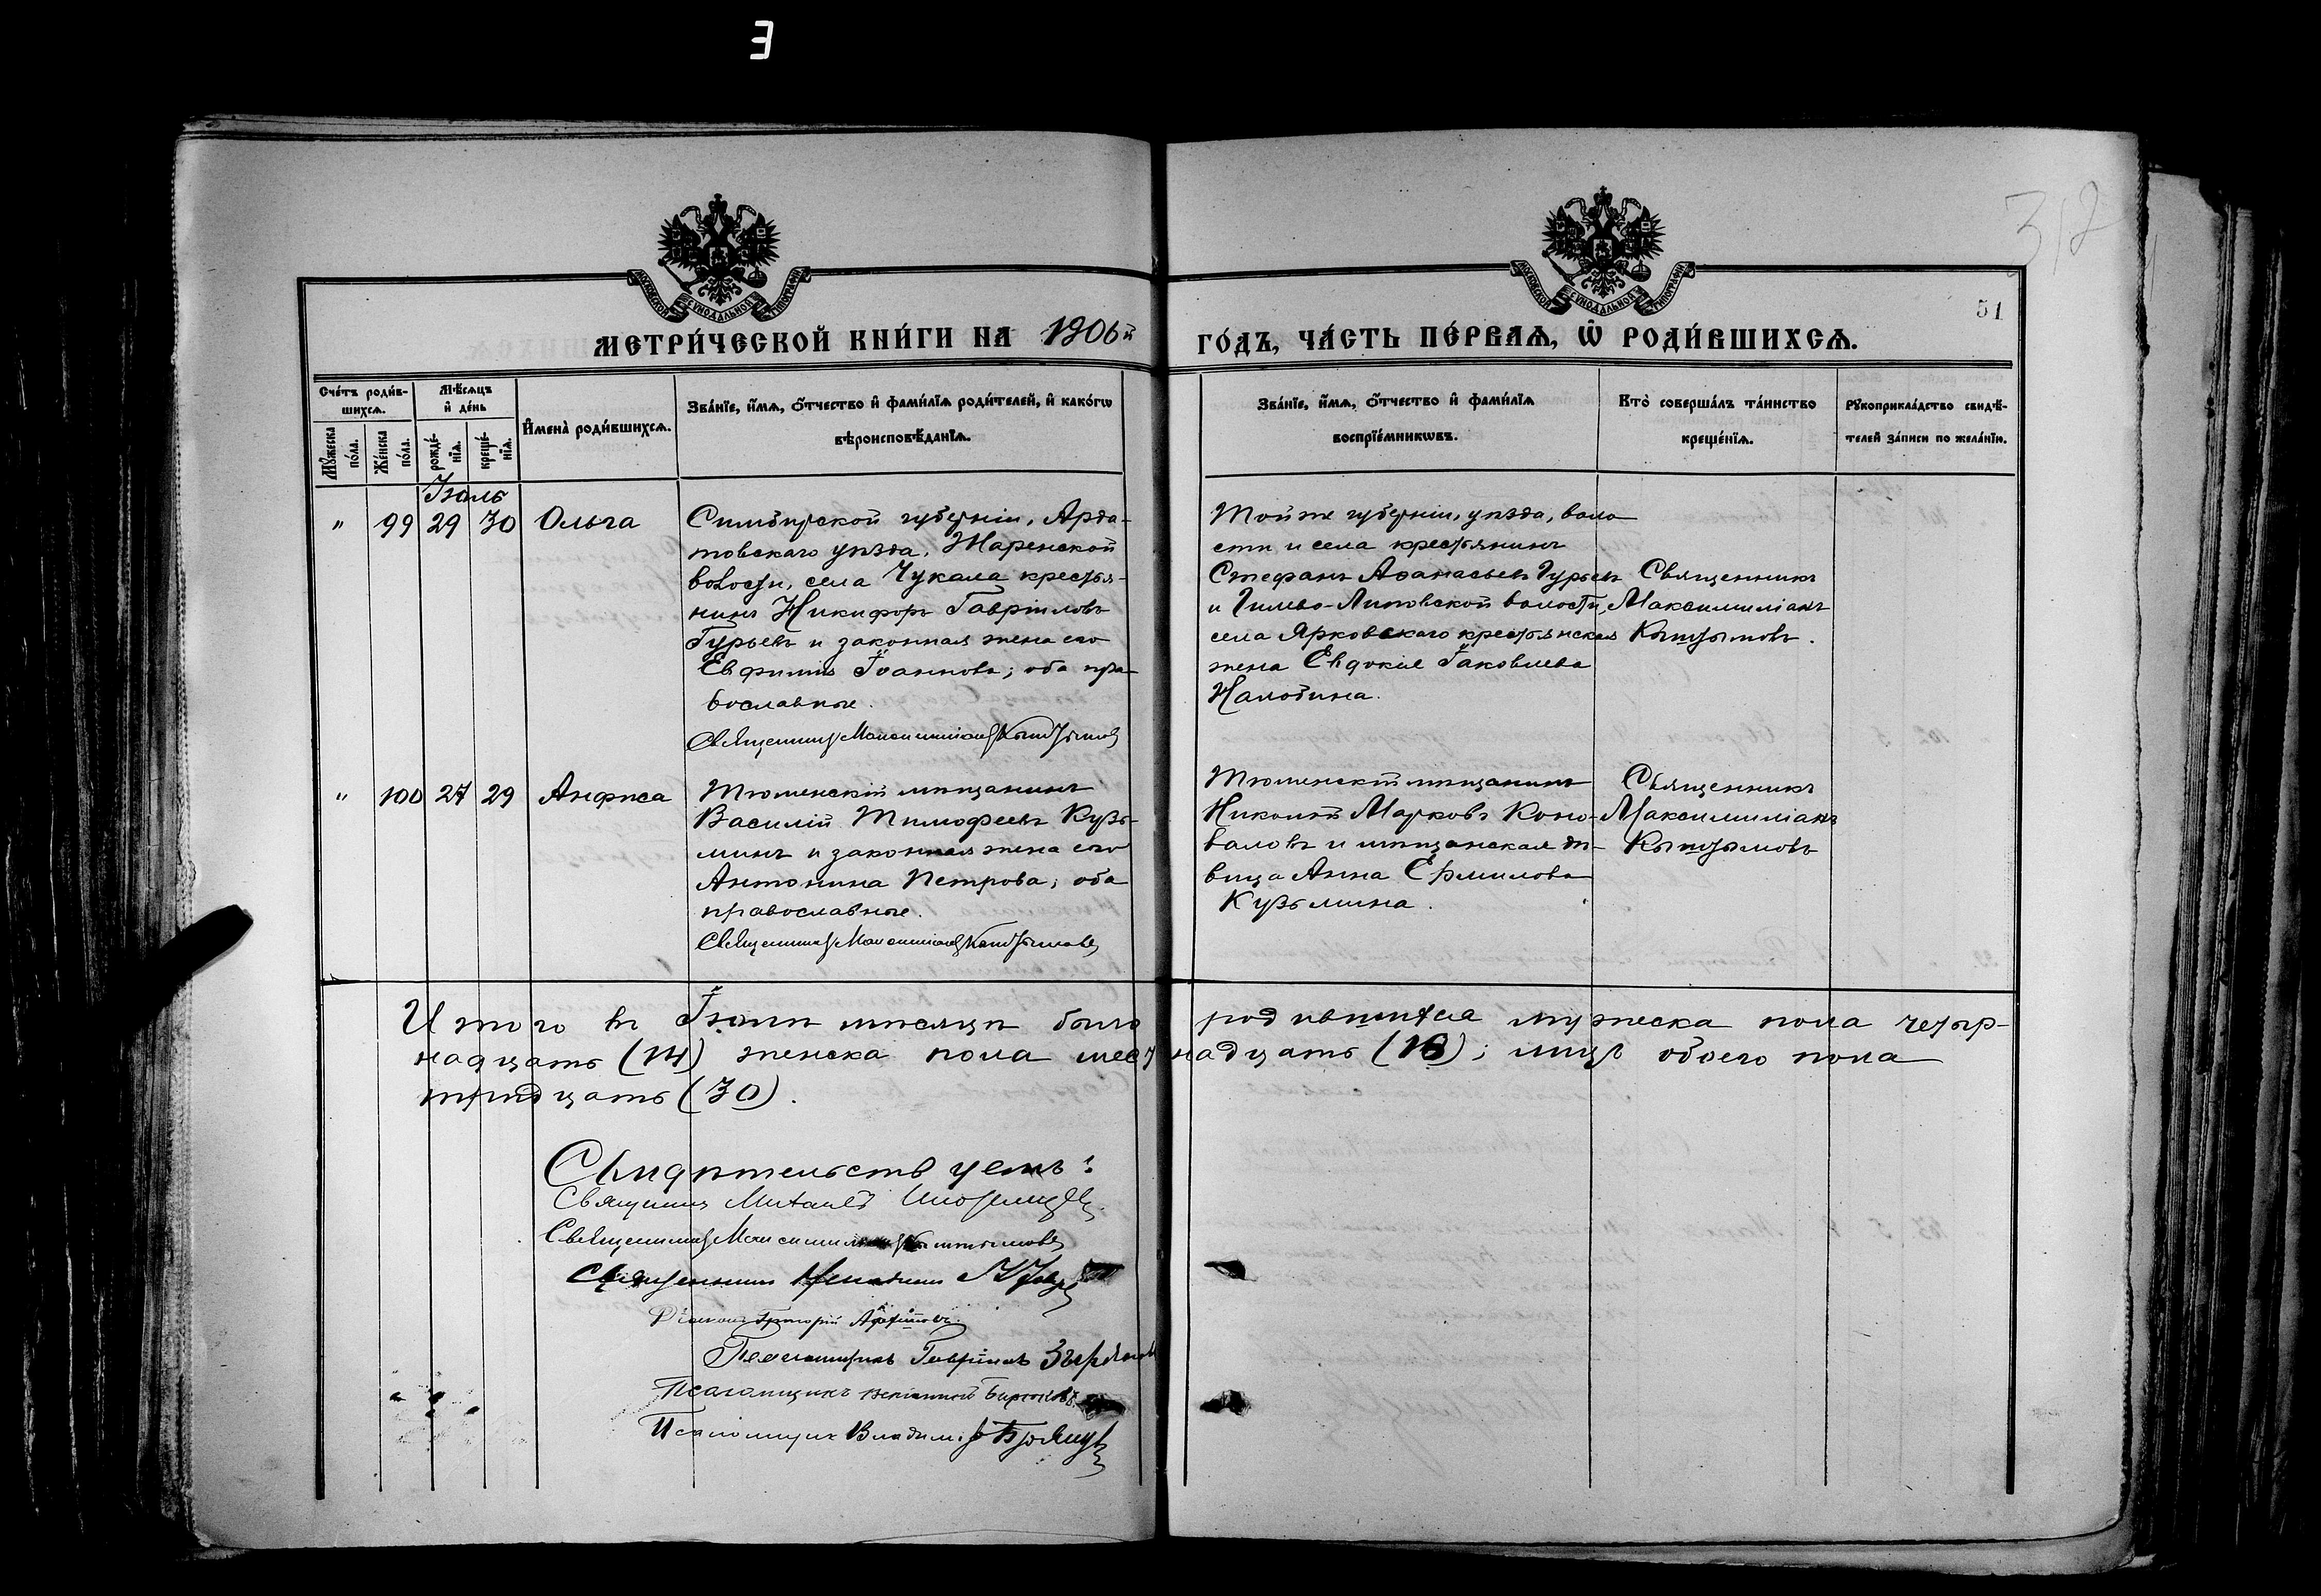 312
51
МОСКОВСКОЙ СУНОДАЛЬНОЙ ТИПОГРАФІИ
МОСКОВСКОЙ СУНОДАЛЬНОЙ ТИПОГРАФІИ
МЕТРИ́ЧЕСКОЙ КНИ́ГИ НА 1906й ГО́ДЪ, ЧА́СТЬ ПЕ́РВАѦ, Ѡ҆ РОДИ́ВШИХСѦ.
Сче́тъ роди́в-
шихсѧ.
Мꙋ́жеска по́ла.
Же́нска по́ла.
Мѣ́сѧцъ
и҆ де́нь
рожде́-нїѧ.
креще́-нїѧ.
И҆мена̀ роди́вшихсѧ.
Зва́нїе, и҆́мѧ, ѻ҆́тчество и҆ фами́лїѧ роди́телей, и҆ како́гѡ
вѣроисповѣ́данїѧ.
Зва́нїе, и҆́мѧ, ѻ҆́тчество и҆ фами́лїѧ
воспрїе́мникѡвъ.
Кто̀ соверша́лъ та́инство
креще́нїѧ.
Рꙋкоприкла́дство свидѣ́-
телей за́писи по жела́нїю.
Іюль
" 99 29 30 Ольга
Симбирской губерніи, Арда-
товскаго уѣзда, Жаренской
волости, села Чукала крестья-
нинъ Никифоръ Гавріиловъ
Гурьевъ и законная жена его
Евфимія Іоаннова; оба пра-
вославные.
Священникъ Максимиліанъ Кыштымовъ
Той же губерніи, уѣзда, воло
сти и села крестьянинъ
Стефанъ Аѳанасьевъ Гурьевъ
и Гилево-Липовской волости,
села Ярковскаго крестьянская
жена Евдокія Іаковлева
Священникъ
Максимиліанъ
Кыштымовъ.
" 100 27 29 Анфиса
Тюменскій мѣщанинъ
Василій Тимофеевъ Кузь-
минъ и законная жена его
Антонина Петрова; оба
православные.
Священникъ Максимиліанъ Кыштымовъ
Тюменскій мѣщанинъ
Николай Марковъ Коно-
валовъ и мѣщанская дѣ-
вица Анна Ермилова
Кузьмина.
Священникъ
Максимиліанъ
Кыштымовъ
Итого въ Іюлѣ мѣсяцѣ было родившихся мужеска пола четыр-
надцать (14) женска пола шестнадцать (16); лицъ обоего пола
тридцать (30).
Свидѣтельствуемъ:
Священникъ Михаилъ
Священникъ Максимиліанъ Кыштымовъ
Священникъ
Діаконъ Григорій
Псаломщикъ Гавріилъ
Псаломщикъ Веніаминъ Бирюковъ
Псаломщикъ Владиміръ